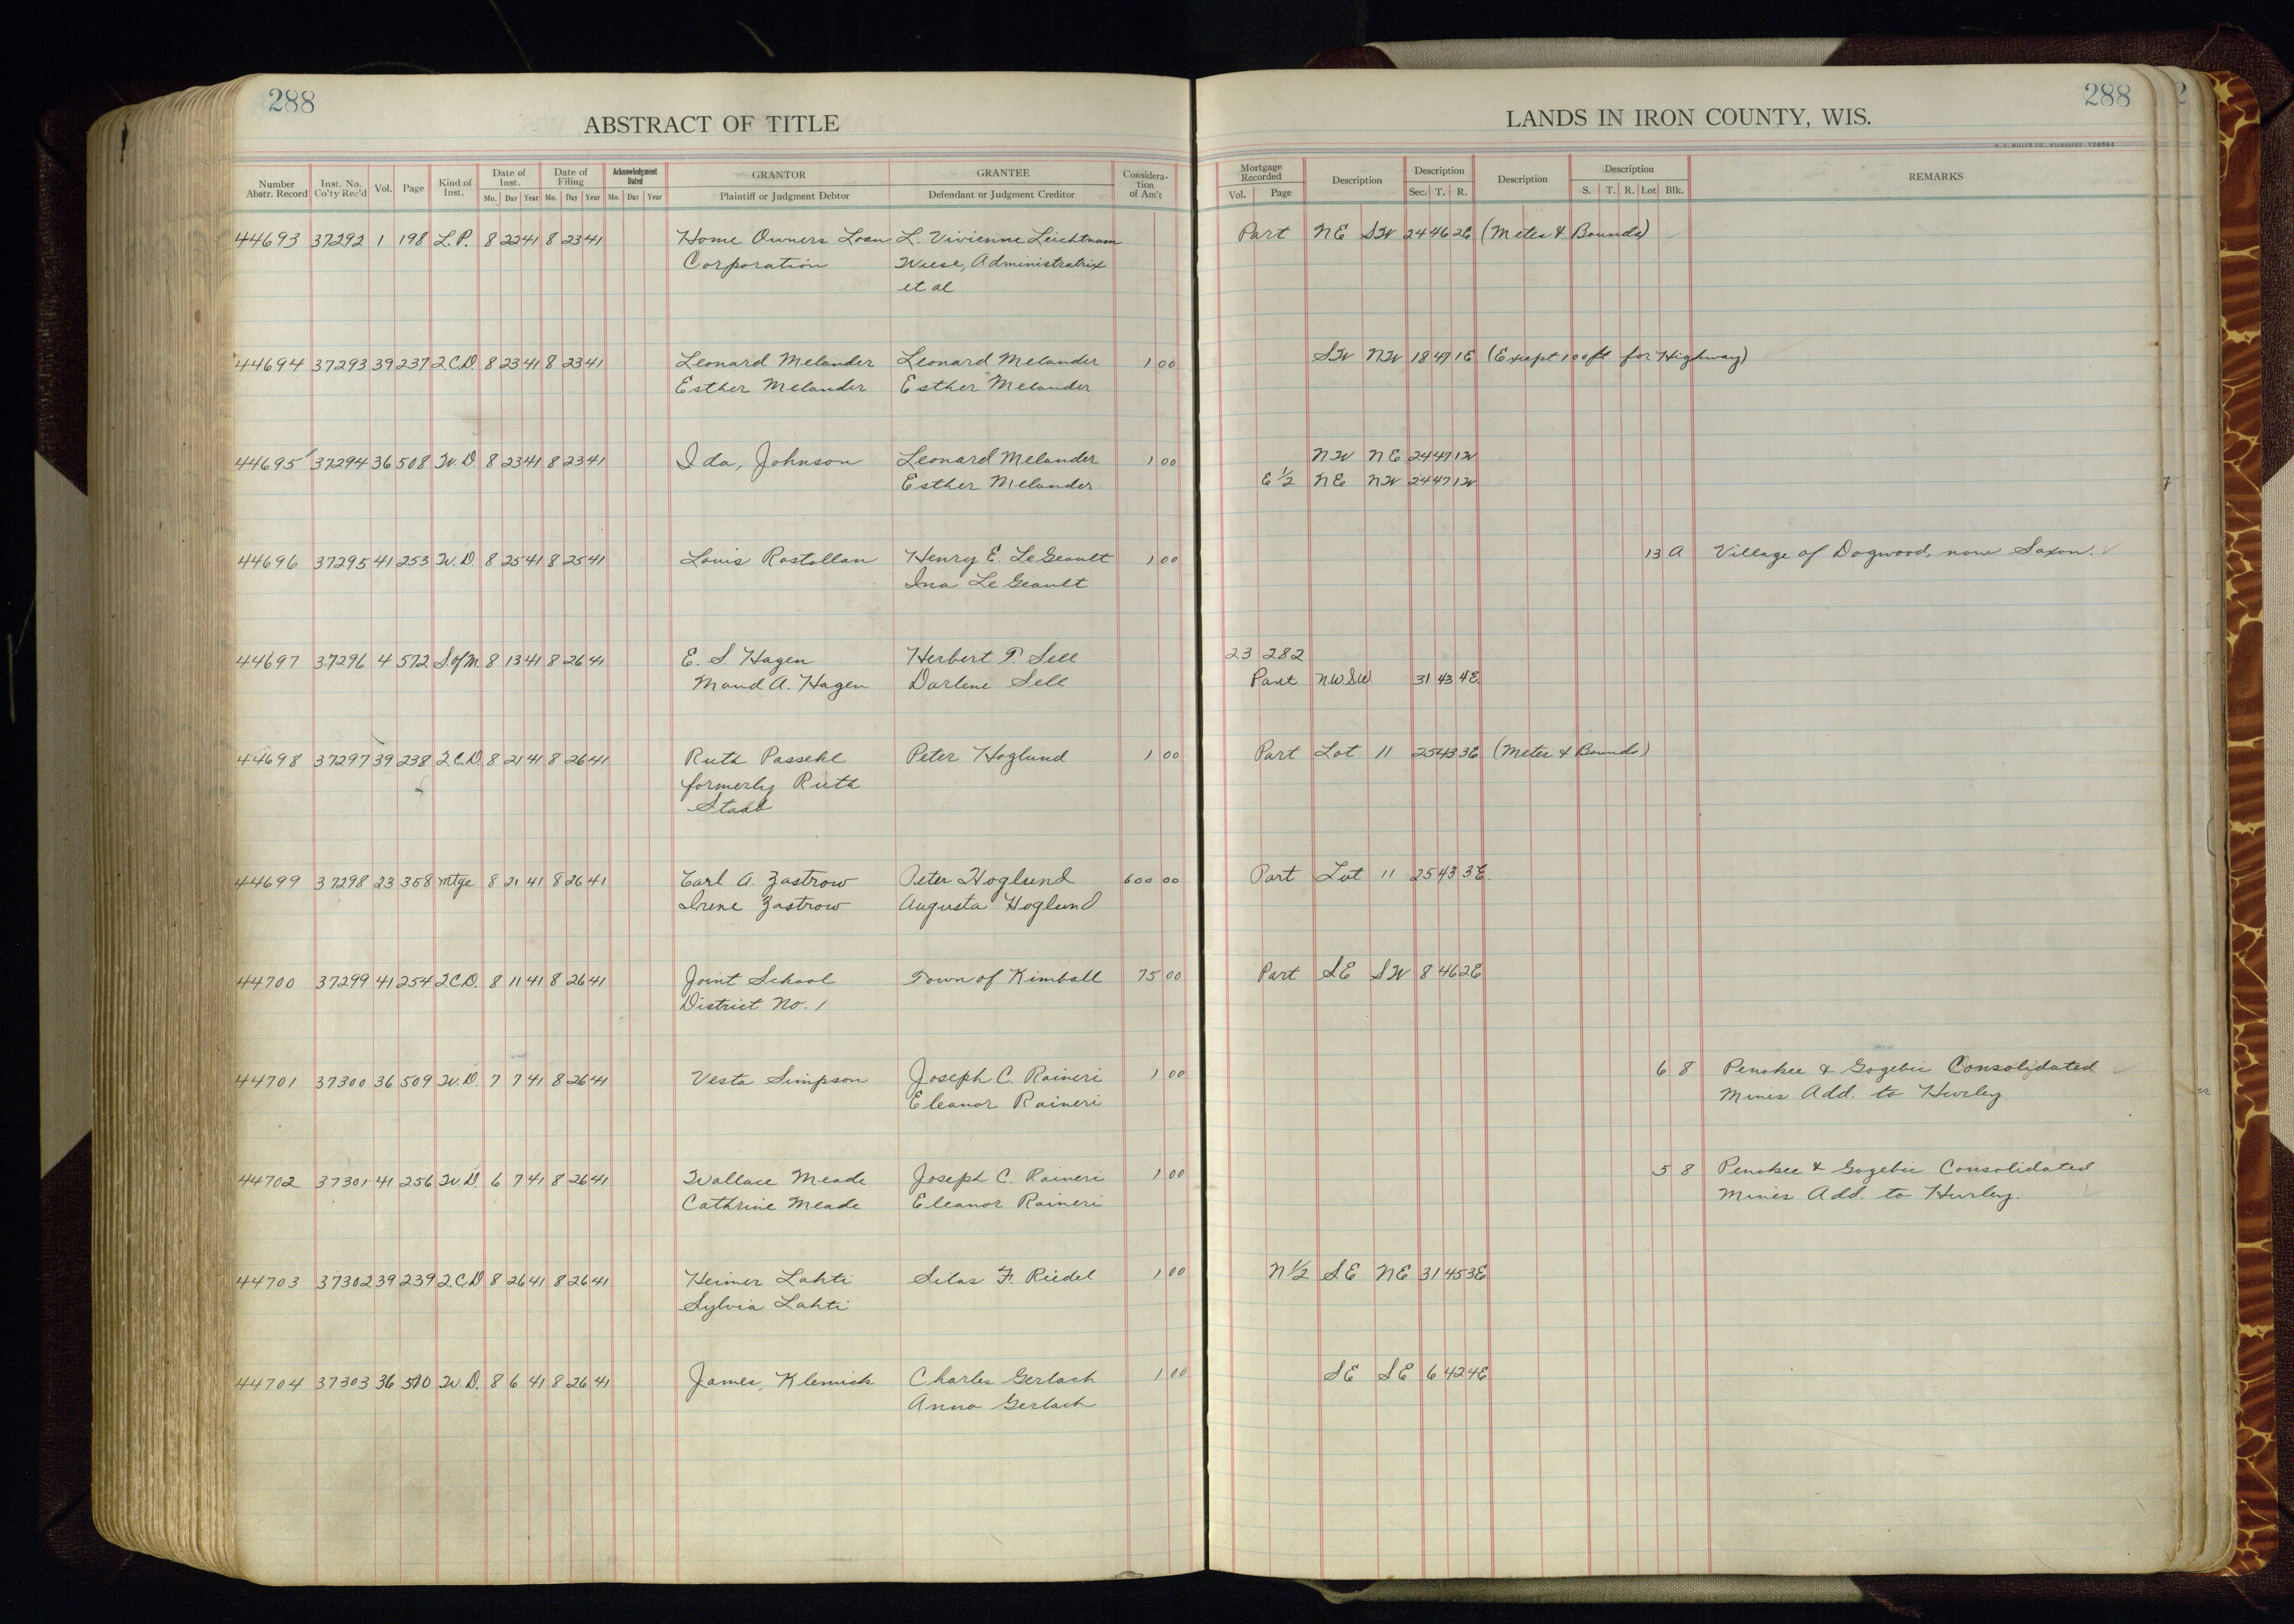 288
ABSTRACT OF TITLE
LANDS IN IRON COUNTY, WIS.
288
H. C. MILLER CO., MILWAUKEE Y28594
Number Abstr. Record | Inst. No. Co'ty Rec'd | Vol. | Page | Kind of Inst. | Date of Inst. Mo. Day Year | Date of Filing Mo. Day Year | Acknowledgment Dated Mo. Day Year | GRANTOR Plaintiff or Judgment Debtor | GRANTEE Defendant or Judgment Creditor | Considera-tion of Am't | Mortgage Recorded Vol. Page | Description | Description Sec. T. R. | Description | Description S. T. R. Lot Blk. | REMARKS
44693 37292 1 198 L.P. 8 22 41 8 23 41 Home Owners Loan L. Vivienne Leichtnam Part NE SW 24 46 2E (Metes & Bounds)
Corporation Wiese, Administratrix
et al
44694 37293 39 237 2.C.D. 8 23 41 8 23 41 Leonard Melander Leonard Melander 1 00 SW NW 18 47 1E (Exept 100 ft. for Highway)
Esther Melander Esther Melander
44695 37294 36 508 W.D. 8 23 41 8 23 41 Ida, Johnson Leonard Melander 1 00 NW NE 24 47 1W
Esther Melander E 1/2 NE NW 24 47 1W
44696 37295 41 253 W.D. 8 25 41 8 25 41 Louis Rostollan Henry E. LeGeault 1 00 13 A Village of Dogwood, now Saxon.
Ina LeGeault
44697 37296 4 572 S.of M. 8 13 41 8 26 41 E. S. Hagen Herbert P. Sell 23 282
Maud A. Hagen Darlene Sell Part NW SW 31 43 4E.
44698 37297 39 238 2.C.D. 8 21 41 8 26 41 Ruth Passehl Peter Hoglund 1 00 Part Lot 11 25 43 3E (Metes & Bounds)
formerly Ruth
Staab
44699 37298 23 358 Mtge 8 21 41 8 26 41 Earl A. Zastrow Peter Hoglund 600 00 Part Lot 11 25 43 3E.
Irene Zastrow Augusta Hoglund
44700 37299 41 254 2.C.D. 8 11 41 8 26 41 Joint School Town of Kimball 75 00 Part SE SW 8 46 2E
District No. 1
44701 37300 36 509 W.D. 7 7 41 8 26 41 Vesta Simpson Joseph C. Raineri 1 00 6 8 Penokee & Gogebic Consolidated
Eleanor Raineri Mines Add. to Hurley
44702 37301 41 256 W.D. 6 7 41 8 26 41 Wallace Meade Joseph C. Raineri 1 00 5 8 Penokee & Gogebic Consolidated
Cathrine Meade Eleanor Raineri Mines Add. to Hurley.
44703 37302 39 239 2.C.D 8 26 41 8 26 41 Heimer Lahti Silas F. Riedel 1 00 N 1/2 SE NE 31 45 3E
Sylvia Lahti
44704 37303 36 510 W.D. 8 6 41 8 26 41 James, Klemick Charles Gerlach 1 00 SE SE 6 42 4E
Anna Gerlach